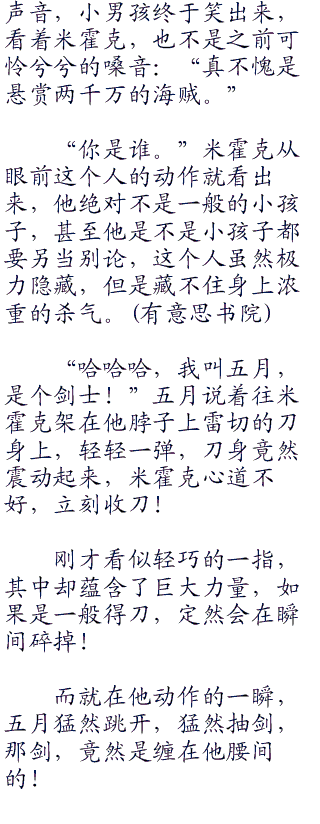 声音，小男孩终于笑出来，
看着米霍克，也不是之前可
怜兮兮的嗓音：“真不愧是
悬赏两千万的海贼。”
“你是谁。”米霍克从
眼前这个人的动作就看出
来，他绝对不是一般的小孩
子，甚至他是不是小孩子都
要另当别论，这个人虽然极
力隐藏，但是藏不住身上浓
重的杀气。(有意思书院)
“哈哈哈，我叫五月，
是个剑士！”五月说着往米
霍克架在他脖子上雷切的刀
身上，轻轻一弹，刀身竟然
震动起来，米霍克心道不
好，立刻收刀！
刚才看似轻巧的一指，
其中却蕴含了巨大力量，如
果是一般得刀，定然会在瞬
间碎掉！
而就在他动作的一瞬，
五月猛然跳开，猛然抽剑，
那剑，竟然是缠在他腰间
的！